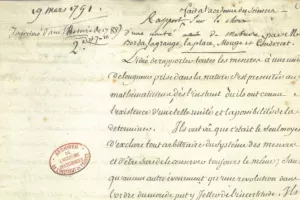 19 mars 1791.
fait à l'académie des Sciences
Rapport sur le choix
Imprimé dans l'histoire de 1788
2. p. 7-16
d'une unité de mesure, par MM.
Borda, lagrange, laplace, Monge et Condorcet.
L'idée de rapporter toutes les mesures à une unité
de longueur prise dans la nature s'est présentée aux
mathématiciens dès l'instant où ils ont connu
l'existence d'une telle unité et la possibilité de la
déterminer. Ils ont vu que c'était le seul moyen
d'exclure tout arbitraire du système des mesures
et d'être sûr de le conserver toujours le même, sans
qu'aucun autre événement qu'une révolution dans
l'ordre du monde put y jetter de l'incertitude. Ils